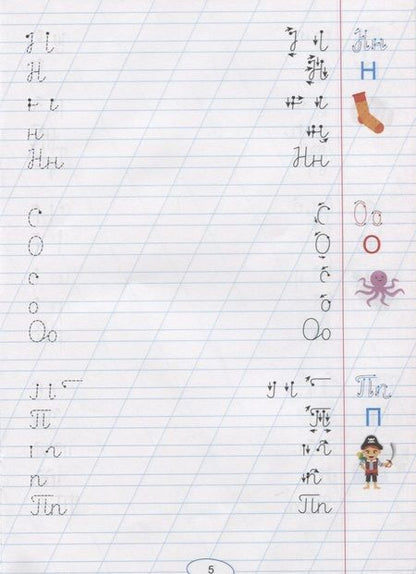 Нн
Н
Н
н
н
Нн Нн
Оо
О О О
о о
Оо Оо
Пп
П П П
п п
Пп Пп
5